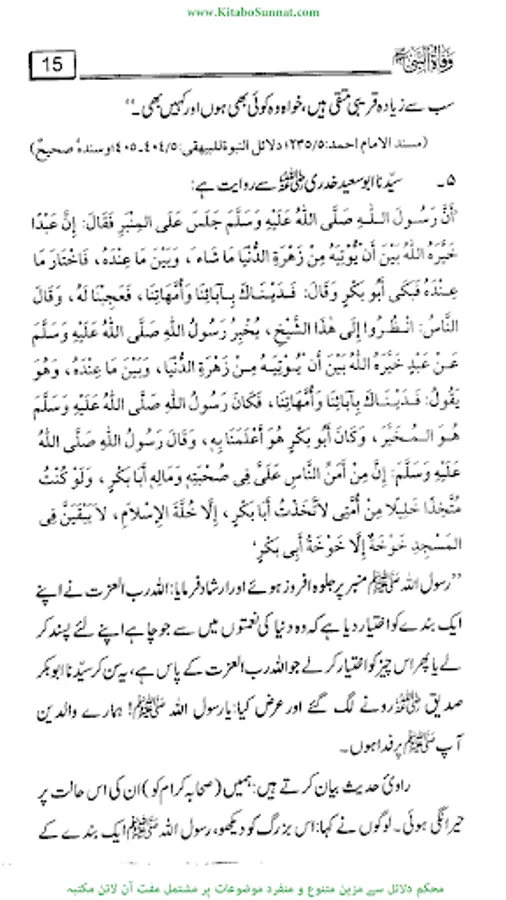 www.KitaboSunnat.com
وفاۃ النبی ﷺ
15
سب سے زیادہ قریبی متقی ہیں، خواہ وہ کوئی بھی ہوں اور کہیں بھی۔‘‘
(مسند الامام احمد: ۲۳۵/۵؛ دلائل النبوۃ للبیہقی: ۴۰۴/۵۔۴۰۵ وسندہٗ صحیحٌ)
۵۔ سیّدنا ابو سعید خدری رضی اللہ عنہ سے روایت ہے:
’أَنَّ رَسُولَ اللّٰهِ صَلَّى اللّٰهُ عَلَيْهِ وَسَلَّمَ جَلَسَ عَلَى الْمِنْبَرِ فَقَالَ: إِنَّ عَبْدًا
خَيَّرَهُ اللّٰهُ بَيْنَ أَنْ يُؤْتِيَهُ مِنْ زَهْرَةِ الدُّنْيَا مَا شَاءَ، وَبَيْنَ مَا عِنْدَهُ، فَاخْتَارَ مَا
عِنْدَهُ فَبَكَى أَبُو بَكْرٍ وَقَالَ: فَدَيْنَاكَ بِآبَائِنَا وَأُمَّهَاتِنَا، فَعَجِبْنَا لَهُ، وَقَالَ
النَّاسُ: انْظُرُوا إِلَى هَذَا الشَّيْخِ، يُخْبِرُ رَسُولُ اللّٰهِ صَلَّى اللّٰهُ عَلَيْهِ وَسَلَّمَ
عَنْ عَبْدٍ خَيَّرَهُ اللّٰهُ بَيْنَ أَنْ يُؤْتِيَهُ مِنْ زَهْرَةِ الدُّنْيَا، وَبَيْنَ مَا عِنْدَهُ، وَهُوَ
يَقُولُ: فَدَيْنَاكَ بِآبَائِنَا وَأُمَّهَاتِنَا، فَكَانَ رَسُولُ اللّٰهِ صَلَّى اللّٰهُ عَلَيْهِ وَسَلَّمَ
هُوَ الْمُخَيَّرَ، وَكَانَ أَبُو بَكْرٍ هُوَ أَعْلَمَنَا بِهِ، وَقَالَ رَسُولُ اللّٰهِ صَلَّى اللّٰهُ
عَلَيْهِ وَسَلَّمَ: إِنَّ مِنْ أَمَنِّ النَّاسِ عَلَيَّ فِي صُحْبَتِهِ وَمَالِهِ أَبَا بَكْرٍ، وَلَوْ كُنْتُ
مُتَّخِذًا خَلِيلًا مِنْ أُمَّتِي لَاتَّخَذْتُ أَبَا بَكْرٍ، إِلَّا خُلَّةَ الْإِسْلَامِ، لَا يَبْقَيَنَّ فِي
الْمَسْجِدِ خَوْخَةٌ إِلَّا خَوْخَةُ أَبِي بَكْرٍ‘
’’رسول اللہ ﷺ منبر پر جلوہ افروز ہوئے اور ارشاد فرمایا: اللہ رب العزت نے اپنے
ایک بندے کو اختیار دیا ہے کہ وہ دنیا کی نعمتوں میں سے جو چاہے اپنے لئے پسند کر
لے یا پھر اس چیز کو اختیار کر لے جو اللہ رب العزت کے پاس ہے، یہ سن کر سیّدنا ابو بکر
صدیق رضی اللہ عنہ رونے لگ گئے اور عرض کیا: یا رسول اللہ ﷺ! ہمارے والدین
آپ ﷺ پر فدا ہوں۔
راویٔ حدیث بیان کرتے ہیں: ہمیں (صحابہ کرام کو) ان کی اس حالت پر
حیرانگی ہوئی۔ لوگوں نے کہا: اس بزرگ کو دیکھو، رسول اللہ ﷺ ایک بندے کے
محکم دلائل سے مزین متنوع و منفرد موضوعات پر مشتمل مفت آن لائن مکتبہ